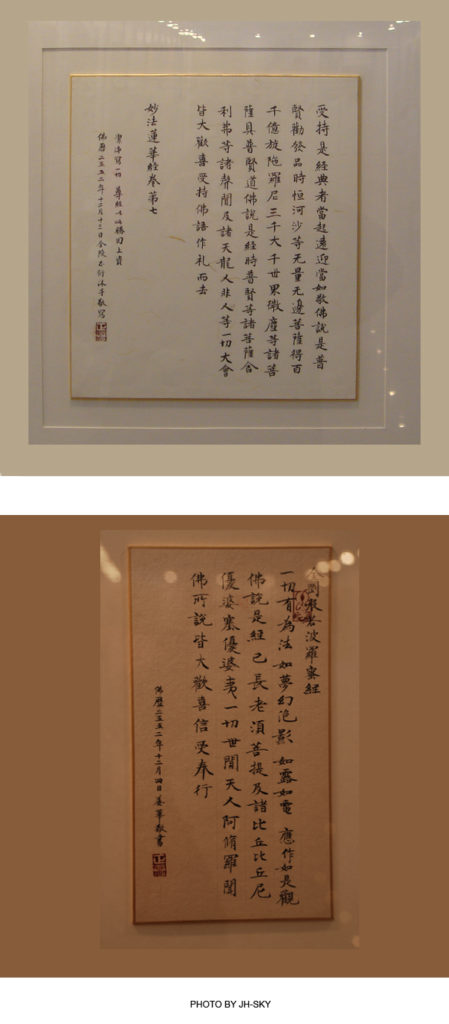 受持是經典者當起遠迎當如敬佛說是普
賢勸發品時恒河沙等无量无邊菩薩得百
千億旋陁羅尼三千大千世界微塵等諸菩
薩具普賢道佛說是經時普賢等諸菩薩舍
利弗等諸聲聞及諸天龍人非人等一切大會
皆大歡喜受持佛語作礼而去
妙法蓮華經卷第七
佛曆二五五二年十二月十三日
金剛般若波羅蜜經
一切有為法如夢幻泡影 如露如電 應作如是觀
佛說是經已長老須菩提及諸比丘比丘尼
優婆塞優婆夷一切世間天人阿脩羅聞
佛所說皆大歡喜信受奉行
佛曆二五五二年十二月四日姜華敬書
PHOTO BY JH-SKY